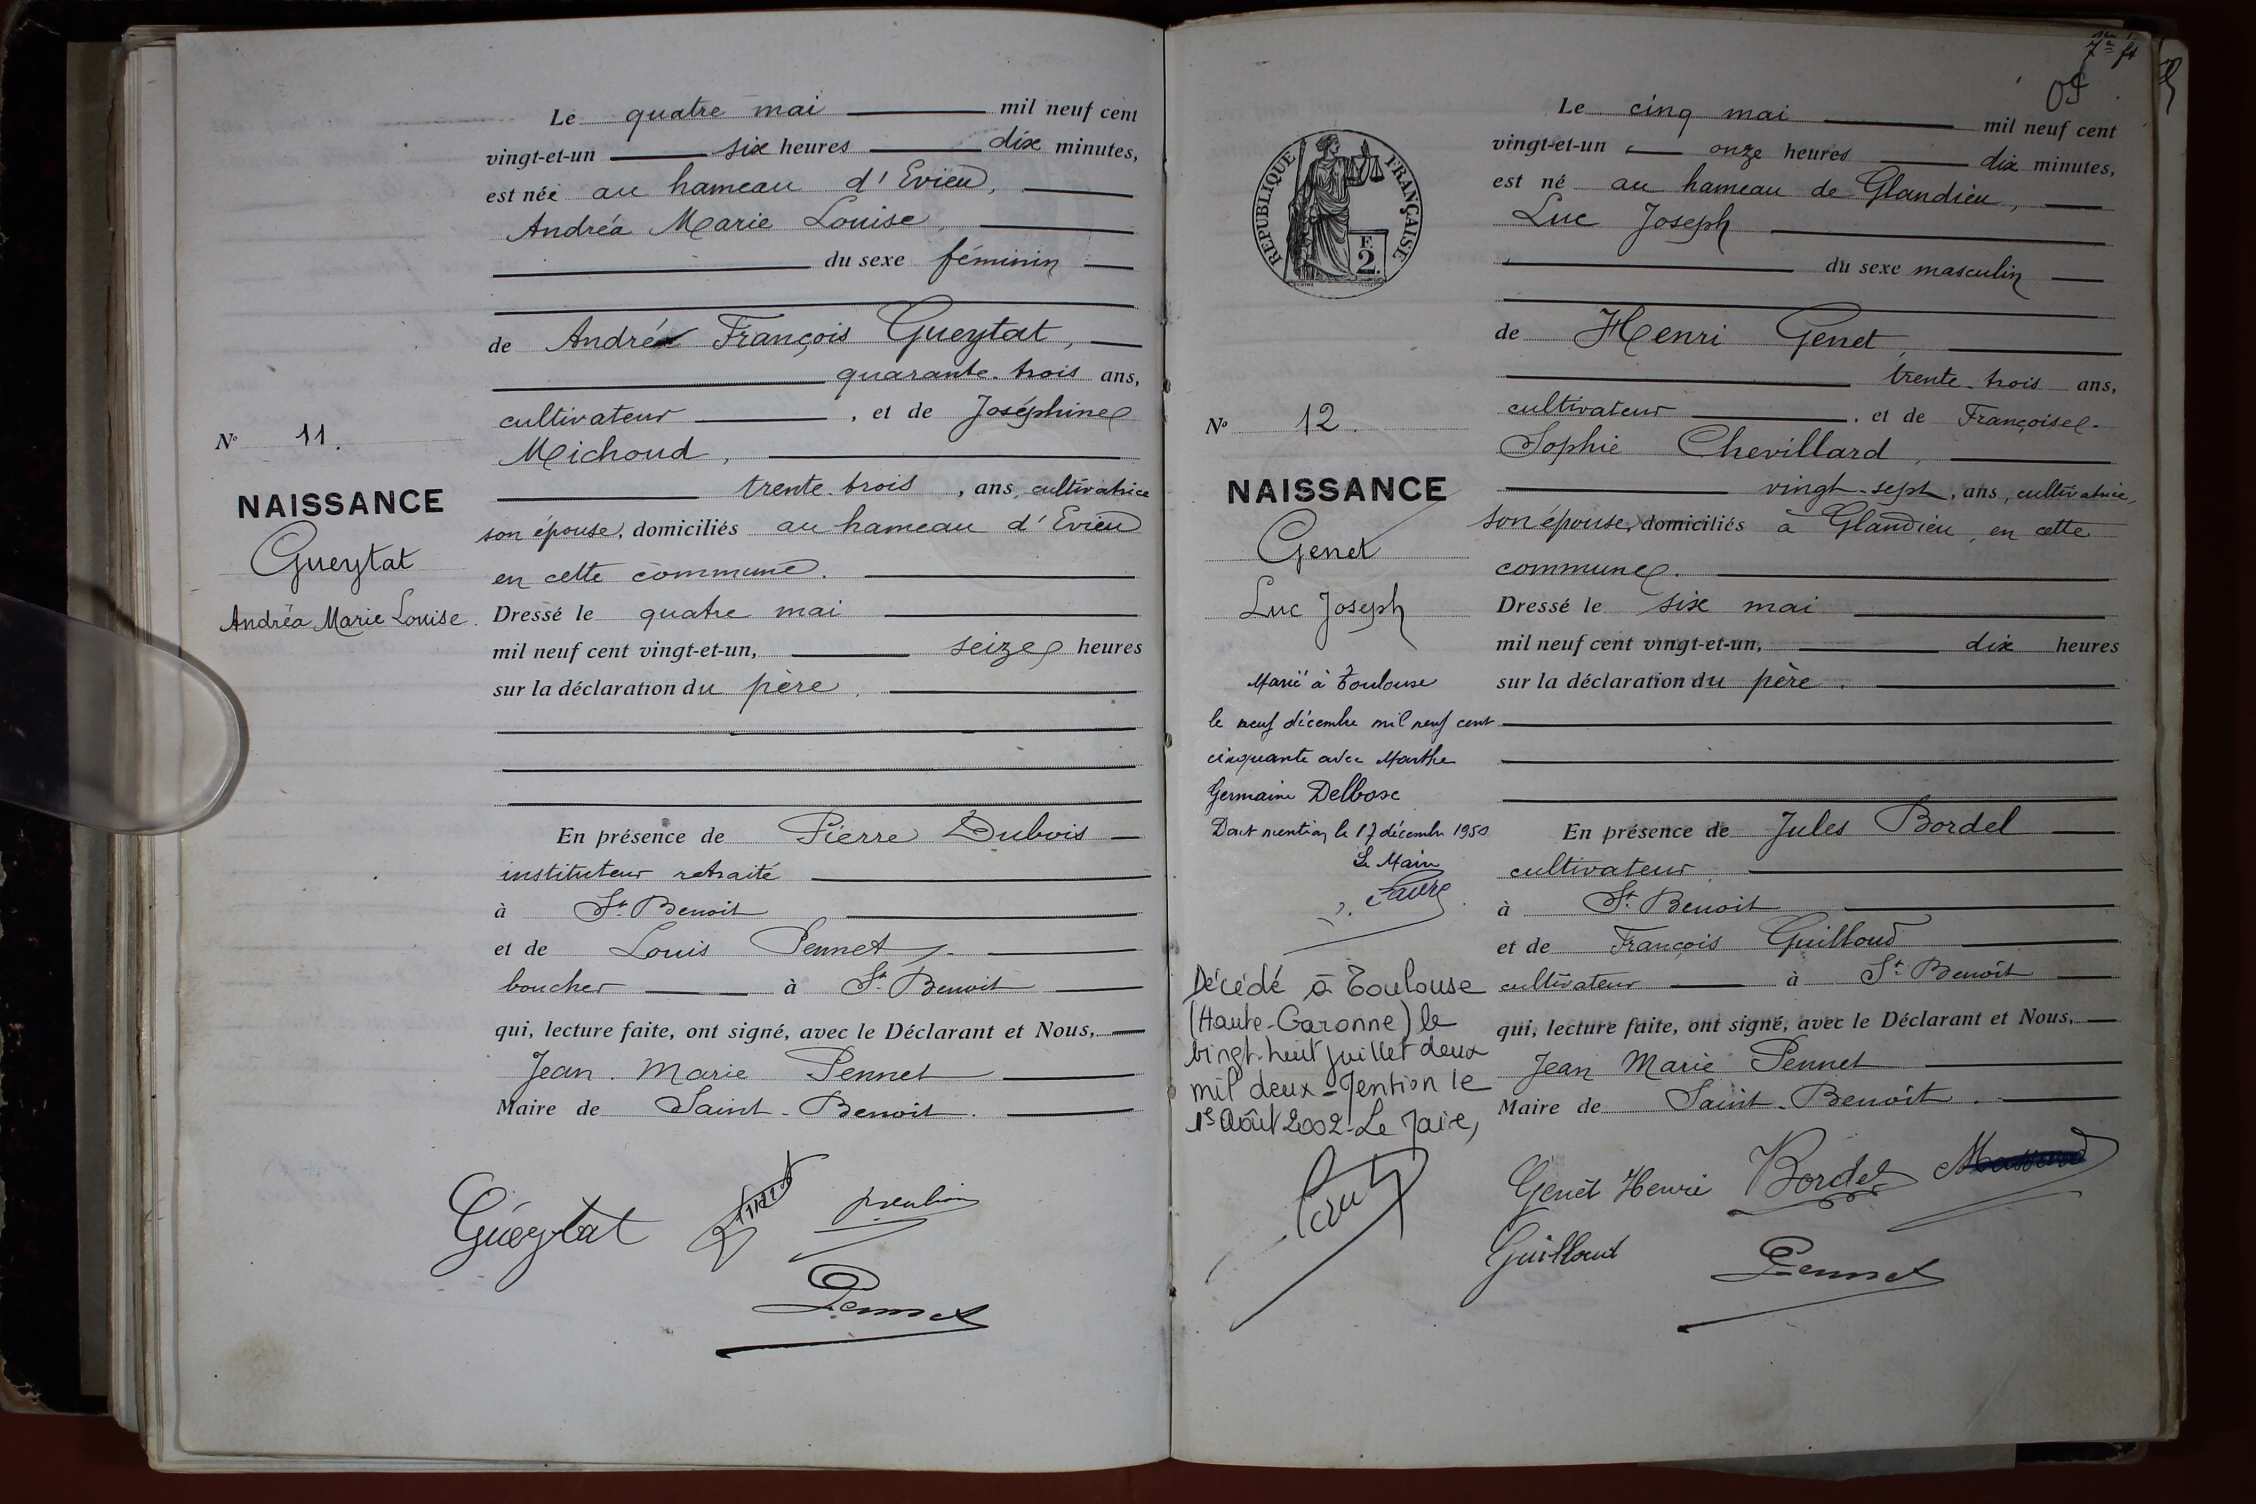 Le quatre mai mil neuf cent
vingt-et-un six heures dix minutes,
est née au hameau d'Evieu,
Andréa Marie Louise,
du sexe féminin
de André François Gueytat,
quarante-trois ans,
cultivateur, et de Joséphine
Michoud,
trente-trois, ans, cultivatrice
son épouse, domiciliés au hameau d'Evieu
en cette commune.
Dressé le quatre mai
mil neuf cent vingt-et-un, seize heures
sur la déclaration du père.
En présence de Pierre Dubois
instituteur retraité
à St. Benoit
et de Louis Pennet,
boucher à St. Benoit
qui, lecture faite, ont signé, avec le Déclarant et Nous,
Jean Marie Pennet
Maire de Saint-Benoit.
No 11.
NAISSANCE
Gueytat
Andréa Marie Louise.
Gueytat
Pennet
REPUBLIQUE FRANÇAISE
F.
2.
No 12.
NAISSANCE
Genet
Luc Joseph
Marié à Toulouse
le neuf décembre mil neuf cent
cinquante avec Marthe
Germaine Delbosc
Dont mention le 17 décembre 1950
Le Maire
Décédé à Toulouse
(Haute-Garonne) le
vingt-huit juillet deux
mil deux - Mention le
1er Août 2002 - Le Maire,
Le cinq mai mil neuf cent
vingt-et-un, onze heures dix minutes,
est né au hameau de Glandieu,
Luc Joseph
du sexe masculin
de Henri Genet,
trente-trois ans,
cultivateur, et de Françoise
Sophie Chevillard,
vingt-sept, ans, cultivatrice,
son épouse, domiciliés à Glandieu, en cette
commune.
Dressé le six mai
mil neuf cent vingt-et-un, dix heures
sur la déclaration du père.
En présence de Jules Bordel
cultivateur
à St. Benoit
et de François Guilloud
cultivateur à St. Benoît
qui, lecture faite, ont signé, avec le Déclarant et Nous,
Jean Marie Pennet
Maire de Saint-Benoît.
Genet Henri Bordel
Guilloud
Pennet